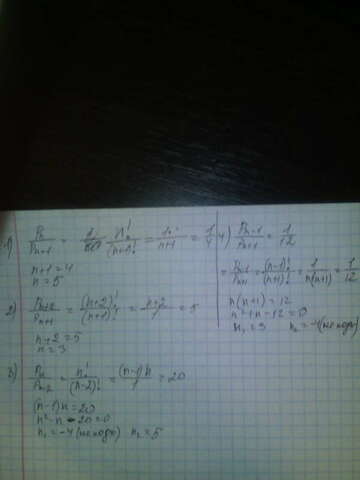 1) Pn/Pn+1 = n!/(n+1)! = 1/n+1 = 1/4
n+1=4
n=5
2) Pn+2/Pn+1 = (n+2)!/(n+1)! = n+2/1 = 5
n+2=5
n=3
3) Pn/Pn-2 = n!/(n-2)! = (n-1)n/1 = 20
(n-1)n=20
n²-n-20=0
n₁=-4 n₂=5
4) Pn-1/Pn+1 = 1/12
= Pn-1/Pn+1 = (n-1)!/(n+1)! = 1/n(n+1) = 1/12
n(n+1)=12
n²+n-12=0
n₁=3 n₂=-4